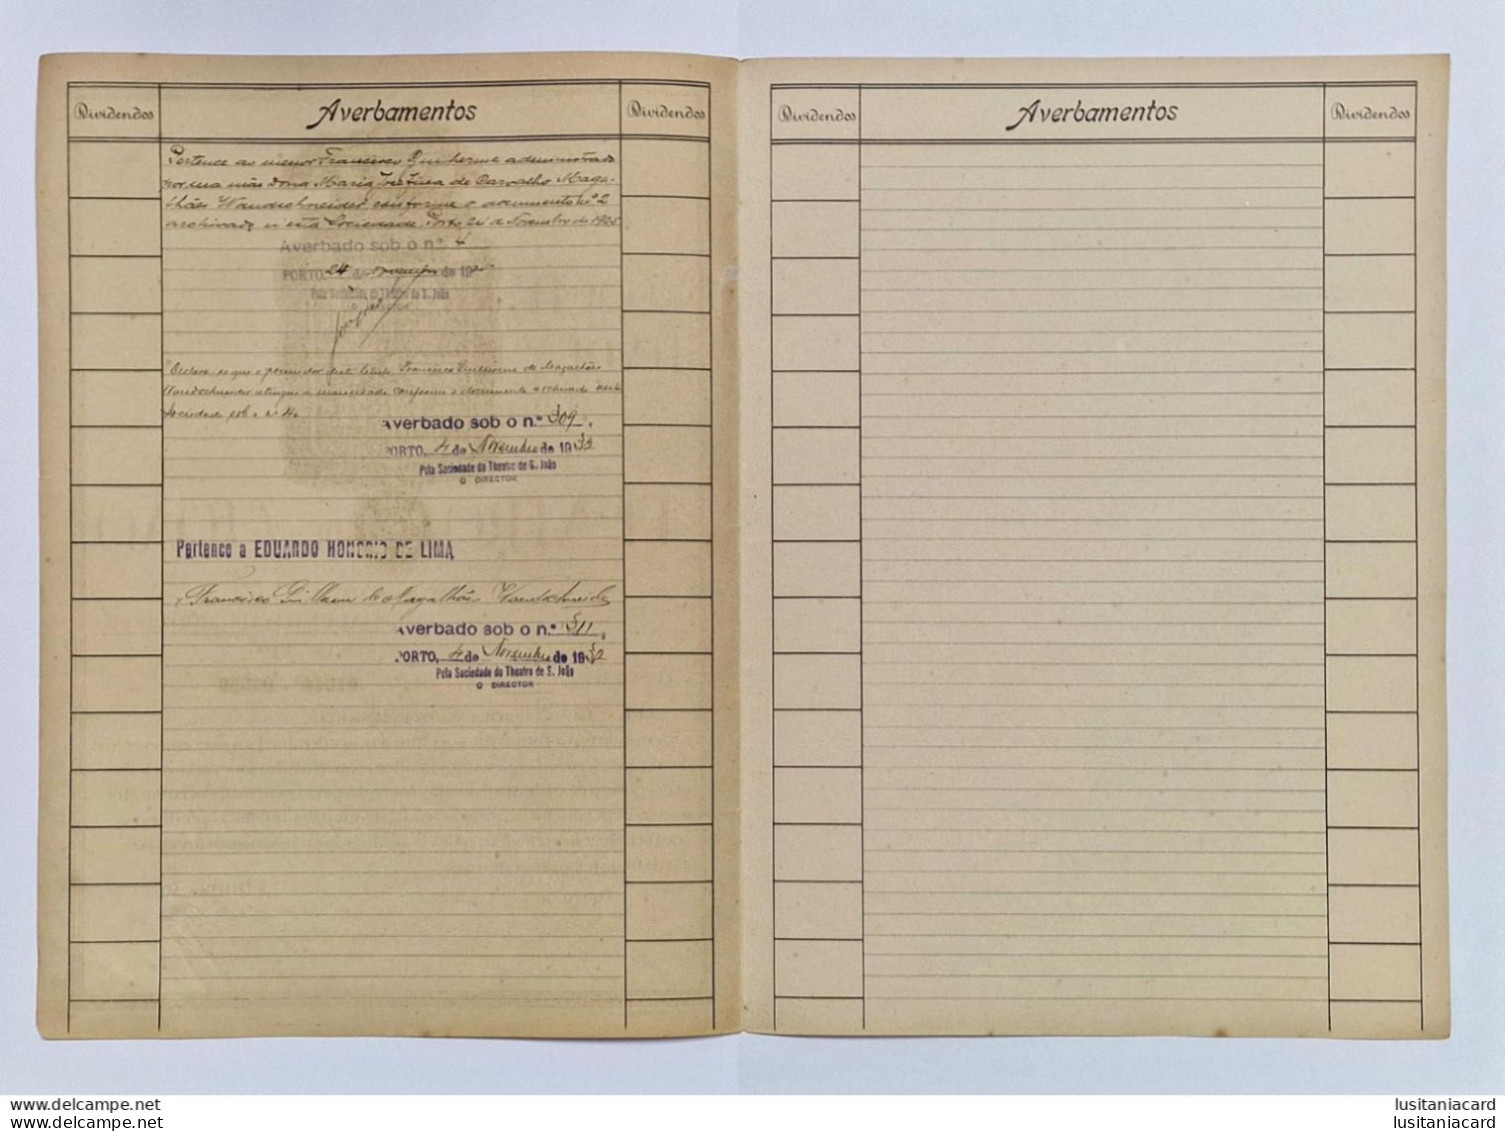 Dividendos
Averbamentos
Dividendos
Pertence ao menor Francisco Guilherme administrado
por sua mãe Dona Maria Josefina de Carvalho Maga-
lhães Wandschneider conforme o documento nº 2
archivado n'esta Sociedade. Porto 24 de Novembro de 1925.
Averbado sob o n.º 4
PORTO, 24 de Novembro de 19
Pela Sociedade do Theatro de S. João
O DIRECTOR
Declara-se que o possuidor deste titulo, Francisco Guilherme de Magalhães
Wandschneider atingiu a maioridade conforme o documento archivado nesta
Sociedade sob o nº 4.
Averbado sob o n.º 309
PORTO, 4 de Novembro de 1932
Pela Sociedade do Theatro de S. João
O DIRECTOR
Pertence a EDUARDO HONORIO DE LIMA
Francisco Guilherme de Magalhães Wandschneider
Averbado sob o n.º 311
PORTO, 4 de Novembro de 1932
Pela Sociedade do Theatro de S. João
O DIRECTOR
Dividendos
Averbamentos
Dividendos
lusitaniacard
lusitaniacard
lusitaniacard
lusitaniacard